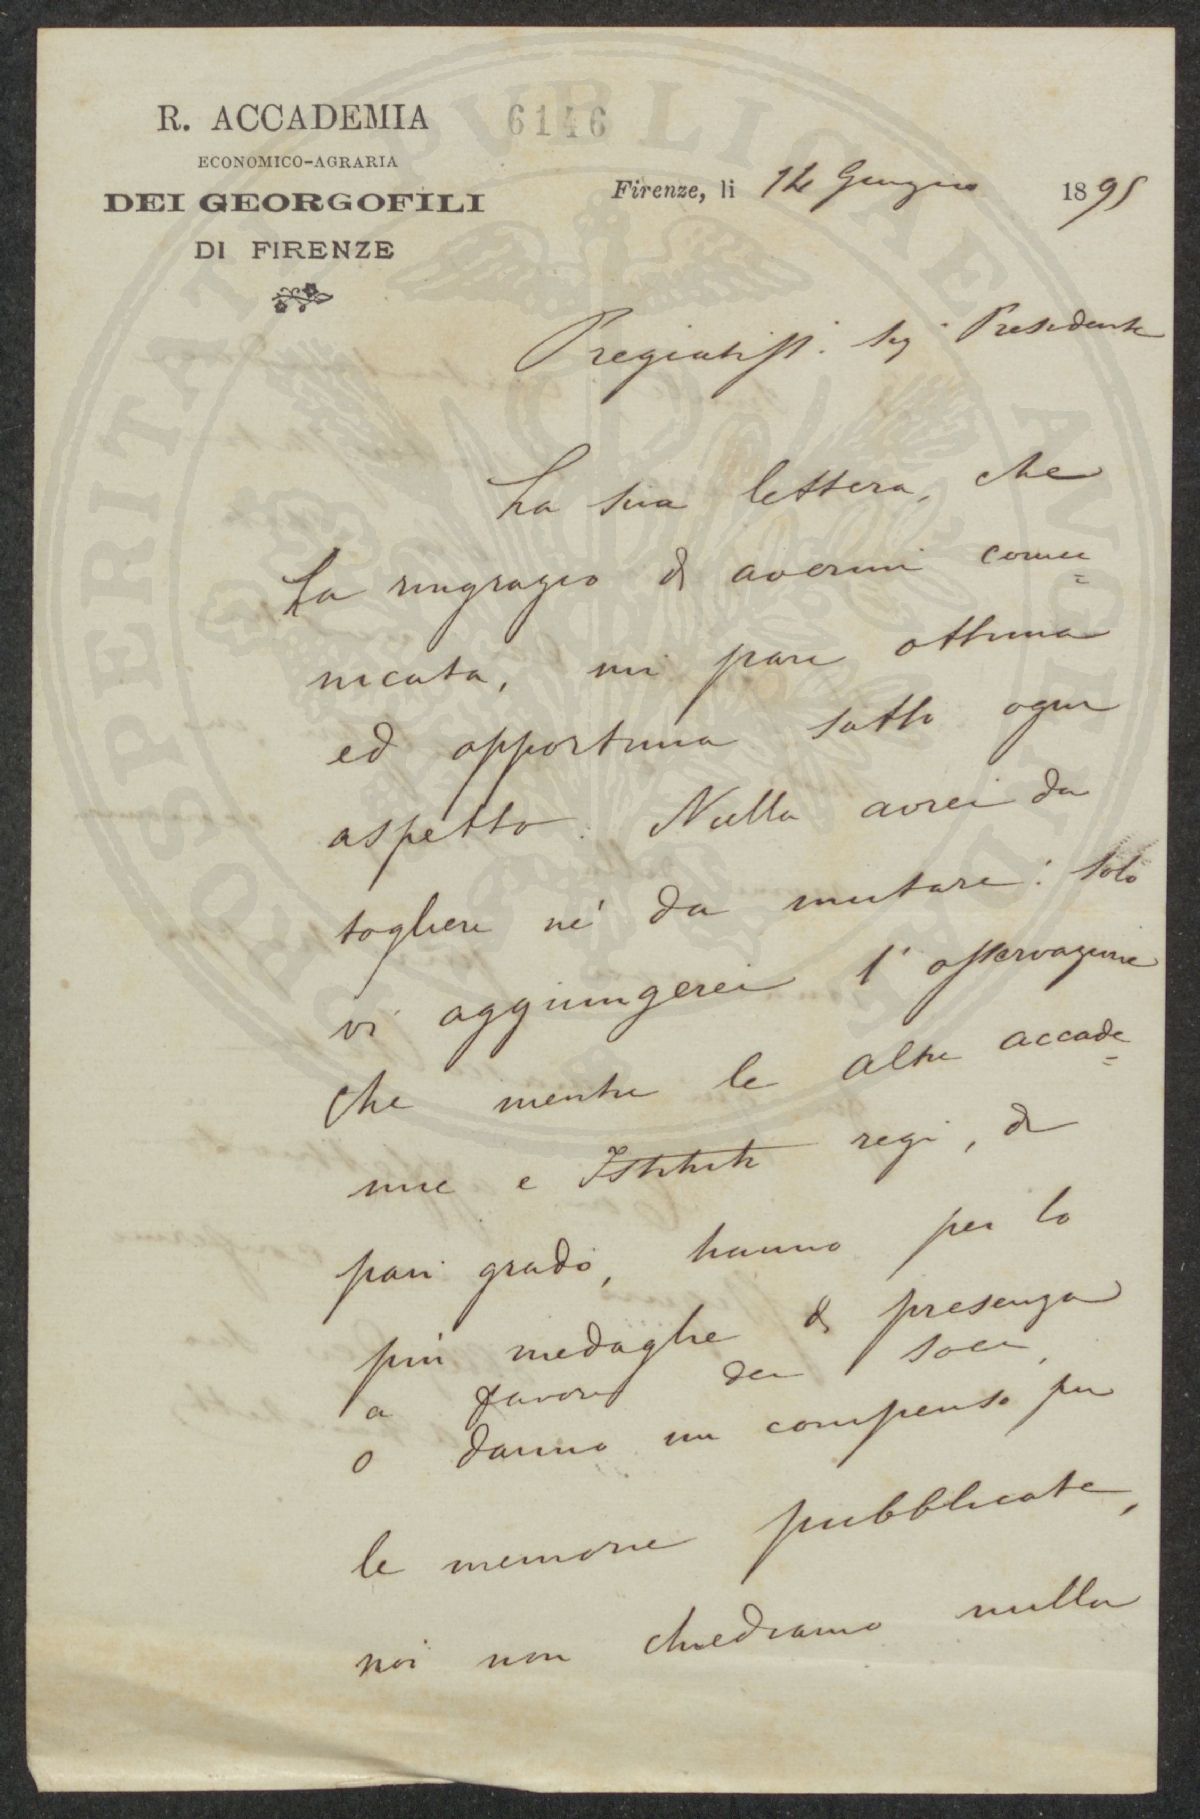 R. ACCADEMIA
ECONOMICO-AGRARIA
DEI GEORGOFILI
DI FIRENZE
6146
Firenze, li 14 Giugno 1895
Pregiatiss. Sig Presidente
La sua lettera, che
La ringrazio di avermi comu=
nicata, mi pare ottima
ed opportuna sotto ogni
aspetto. Nulla avrei da
togliere nè da mutare: solo
vi aggiungerei l'osservazione
che mentre le altre accade=
mie e Istituti regi, di
pari grado, hanno per lo
più medaglie di presenza
a favore dei soci,
o danno un compenso per
le memorie pubblicate,
noi non chiediamo nulla
PROSPERITATI PUBLICAE AUGENDAE